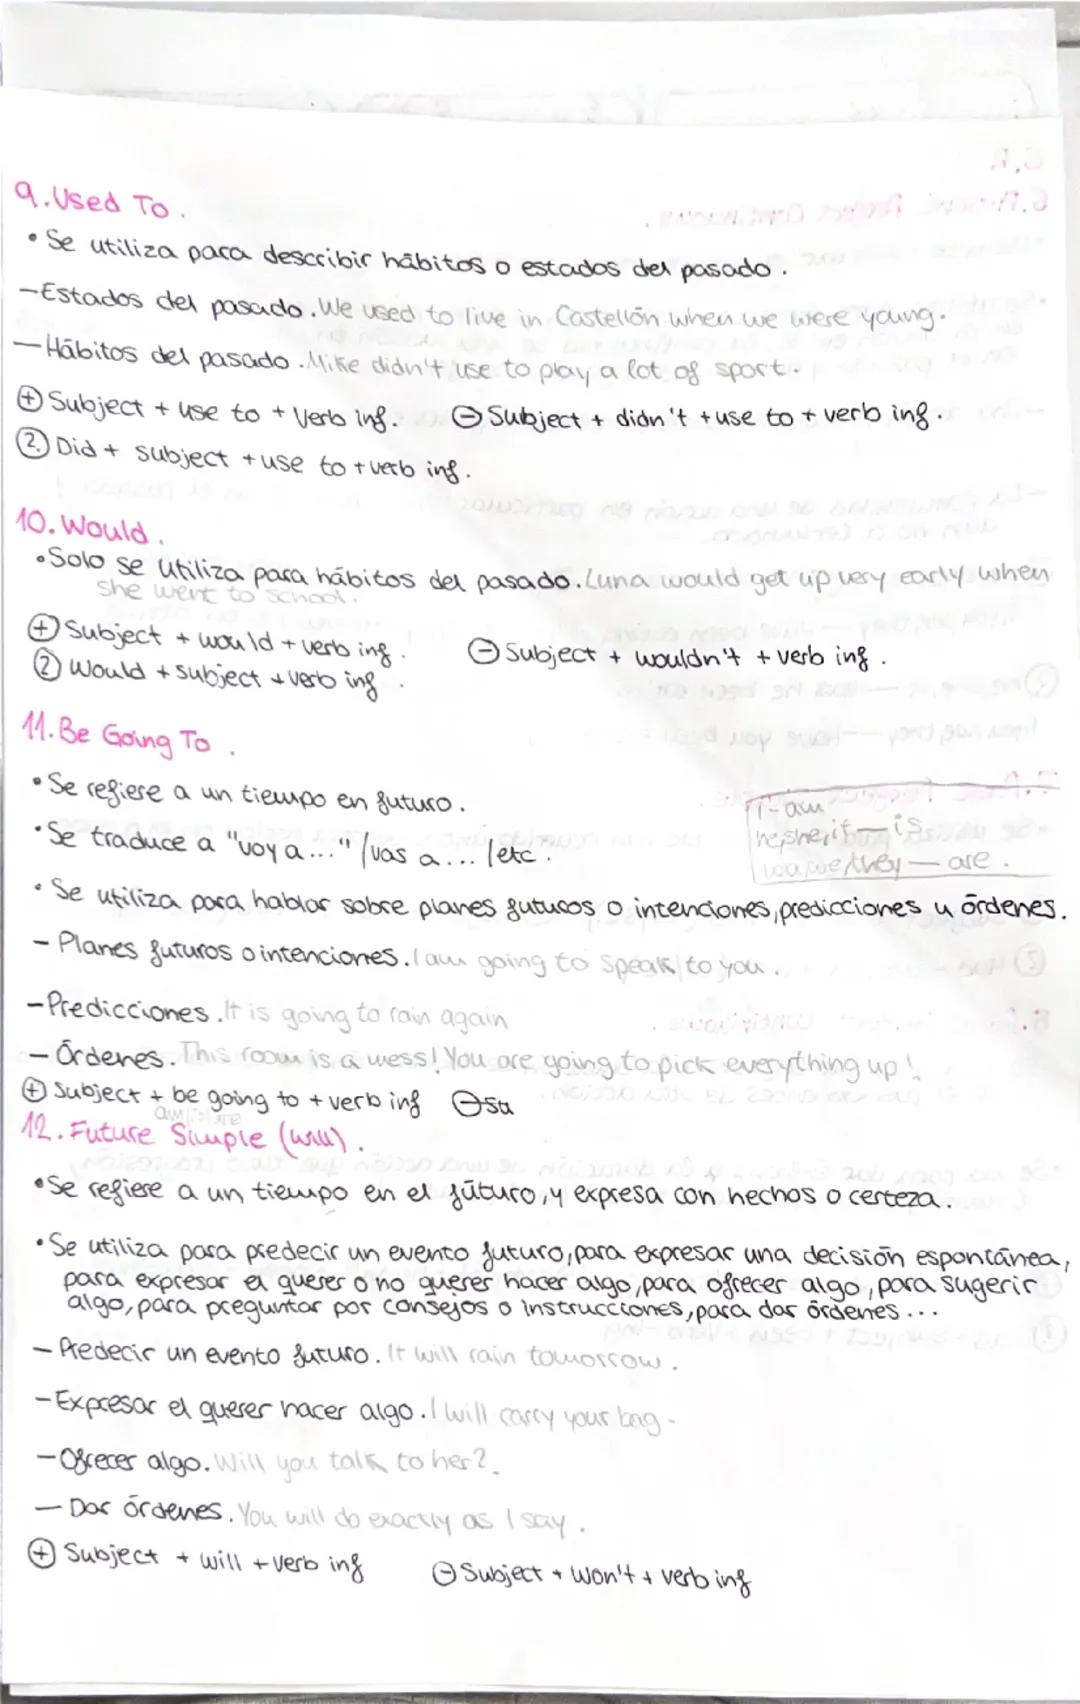 9. Used To.
• Se utiliza para describir hábitos o estados del pasado.
- Estados del pasado. We used to live in Castellón when we were young.
- Hábitos del pasado. Mike didn't use to play a lot of sport.
⊕ Subject + use to + Verb inf. ⊖ Subject + didn't + use to + verb inf.
? Did + subject + use to + verb inf.
10. Would.
• Solo se utiliza para hábitos del pasado. Luna would get up very early when
she went to school.
⊕ Subject + would + verb inf. ⊖ Subject + wouldn't + verb inf.
? Would + subject + verb inf.
11. Be Going To.
• Se refiere a un tiempo en futuro.
• Se traduce a "voy a..."/vas a.../etc.
I - am
he, she, it — is
you, we, they — are.
• Se utiliza para hablar sobre planes futuros o intenciones, predicciones y órdenes.
- Planes futuros o intenciones. I am going to speak to you.
- Predicciones. It is going to rain again
- Órdenes. This room is a mess! You are going to pick everything up!
⊕ Subject + be going to + verb inf ⊖ Su
am/is/are
12. Future Simple (will).
• Se refiere a un tiempo en el fúturo, y expresa con hechos o certeza.
• Se utiliza para predecir un evento futuro, para expresar una decisión espontánea,
para expresar el querer o no querer hacer algo, para ofrecer algo, para sugerir
algo, para preguntar por consejos o instrucciones, para dar órdenes...
- Predecir un evento futuro. It will rain tomorrow.
- Expresar el querer hacer algo. I will carry your bag.
- Ofrecer algo. Will you talk to her?.
- Dar órdenes. You will do exactly as I say.
⊕ Subject + will + verb inf ⊖ Subject + won't + verb inf